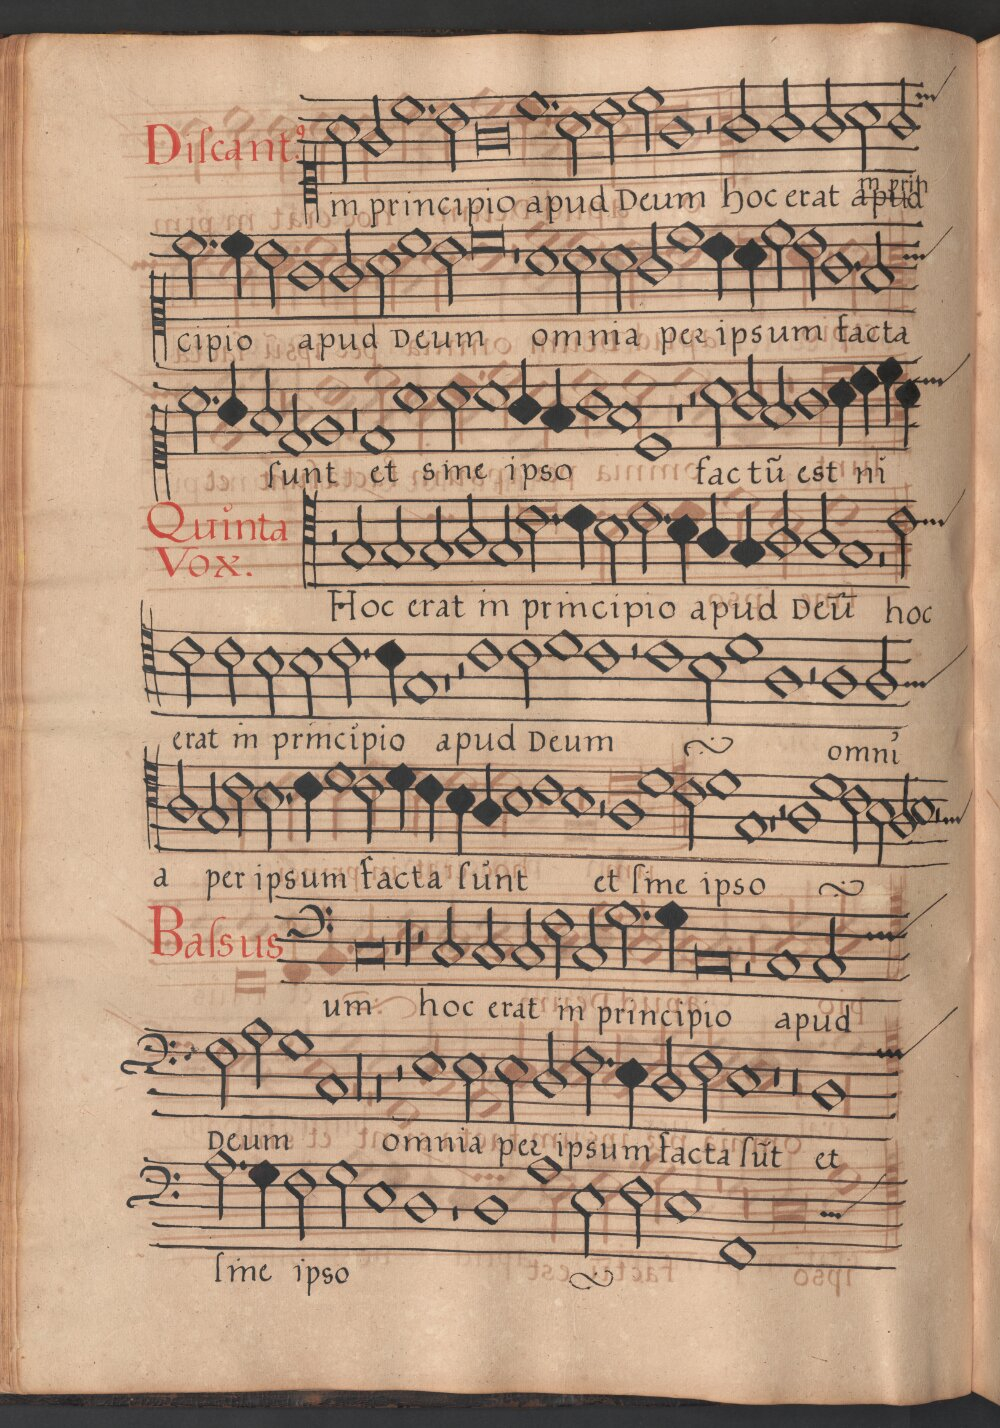 Discant9
in principio apud Deum hoc erat apud
in prin
cipio apud Deum omnia per ipsum facta
sunt et sine ipso factū est ni
Quinta
Vox.
Hoc erat in principio apud Deū hoc
erat in principio apud Deum omni
a per ipsum facta sunt et sine ipso
Bassus
um hoc erat in principio apud
Deum omnia per ipsum facta sūt et
sine ipso